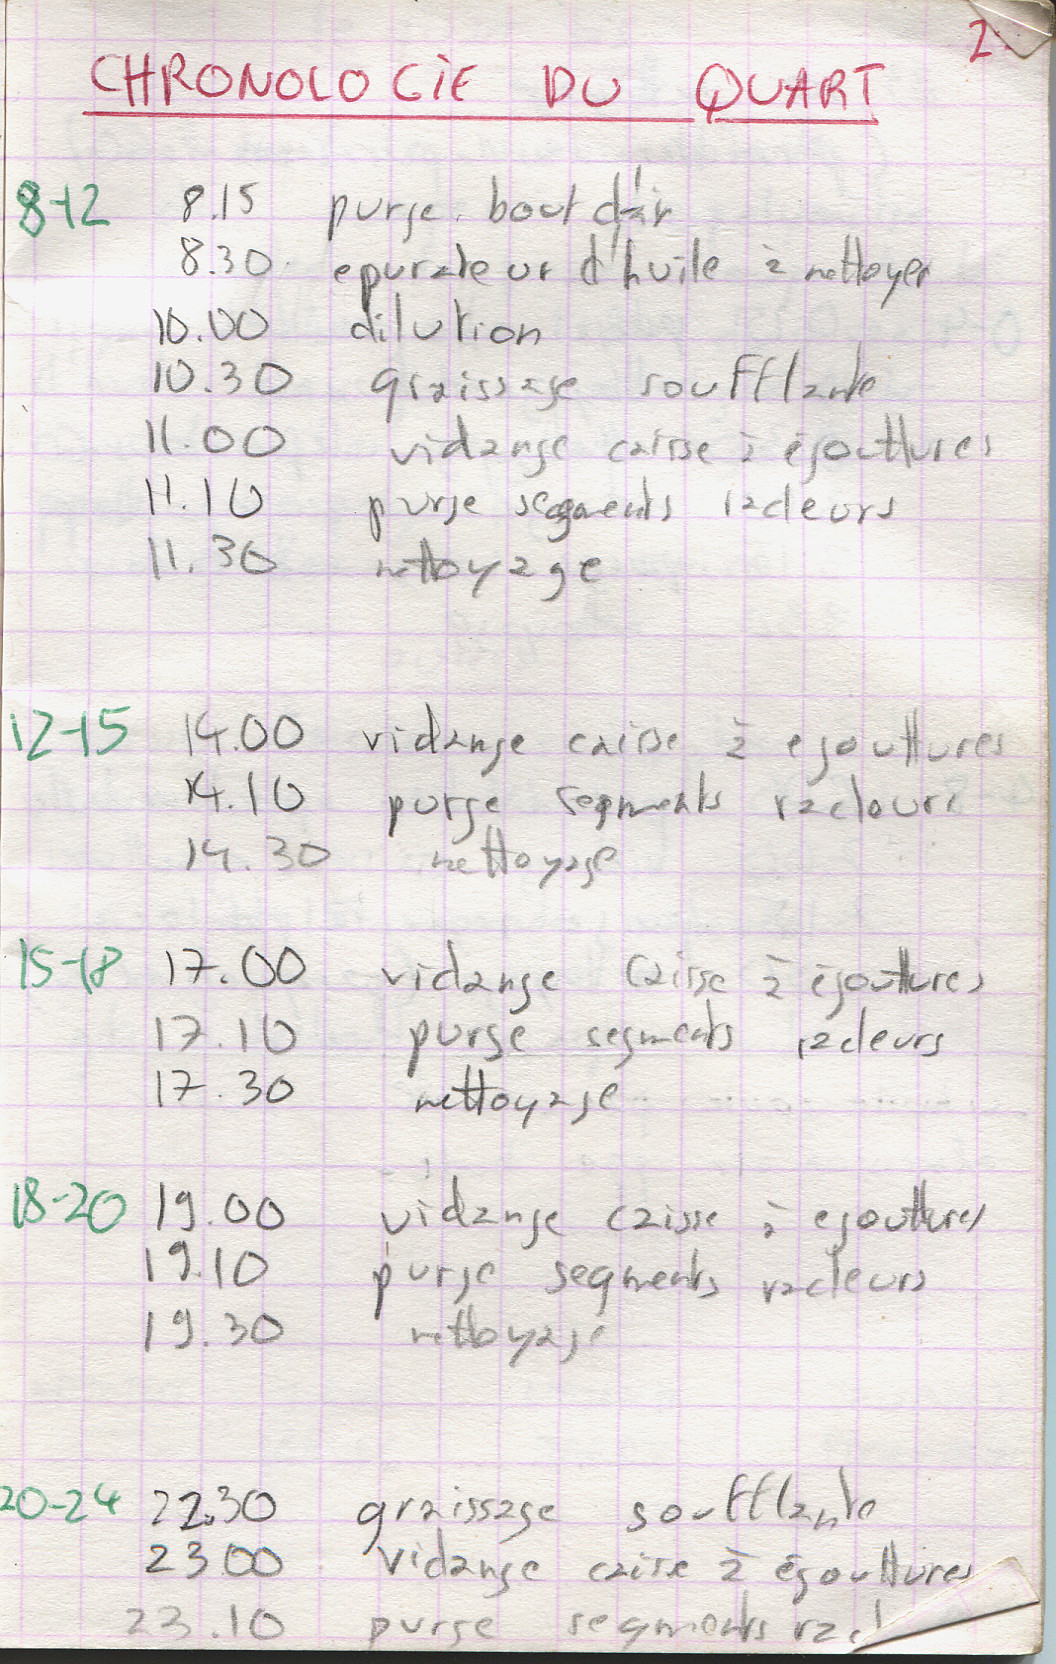 2
CHRONOLOGIE DU QUART
8-12 8.15 purge bout d'air
8.30 epurateur d'huile à nettoyer
10.00 dilution
10.30 graissage soufflante
11.00 vidange caisse à égouttures
11.10 purge segments racleurs
11.30 nettoyage
12-15 14.00 vidange caisse à egouttures
14.10 purge segments racleurs
14.30 nettoyage
15-18 17.00 vidange caisse à égouttures
17.10 purge segments racleurs
17.30 nettoyage
18-20 19.00 vidange caisse à egouttures
19.10 purge segments racleurs
19.30 nettoyage
20-24 22.30 graissage soufflante
23.00 vidange caisse à égouttures
23.10 purge segments racl